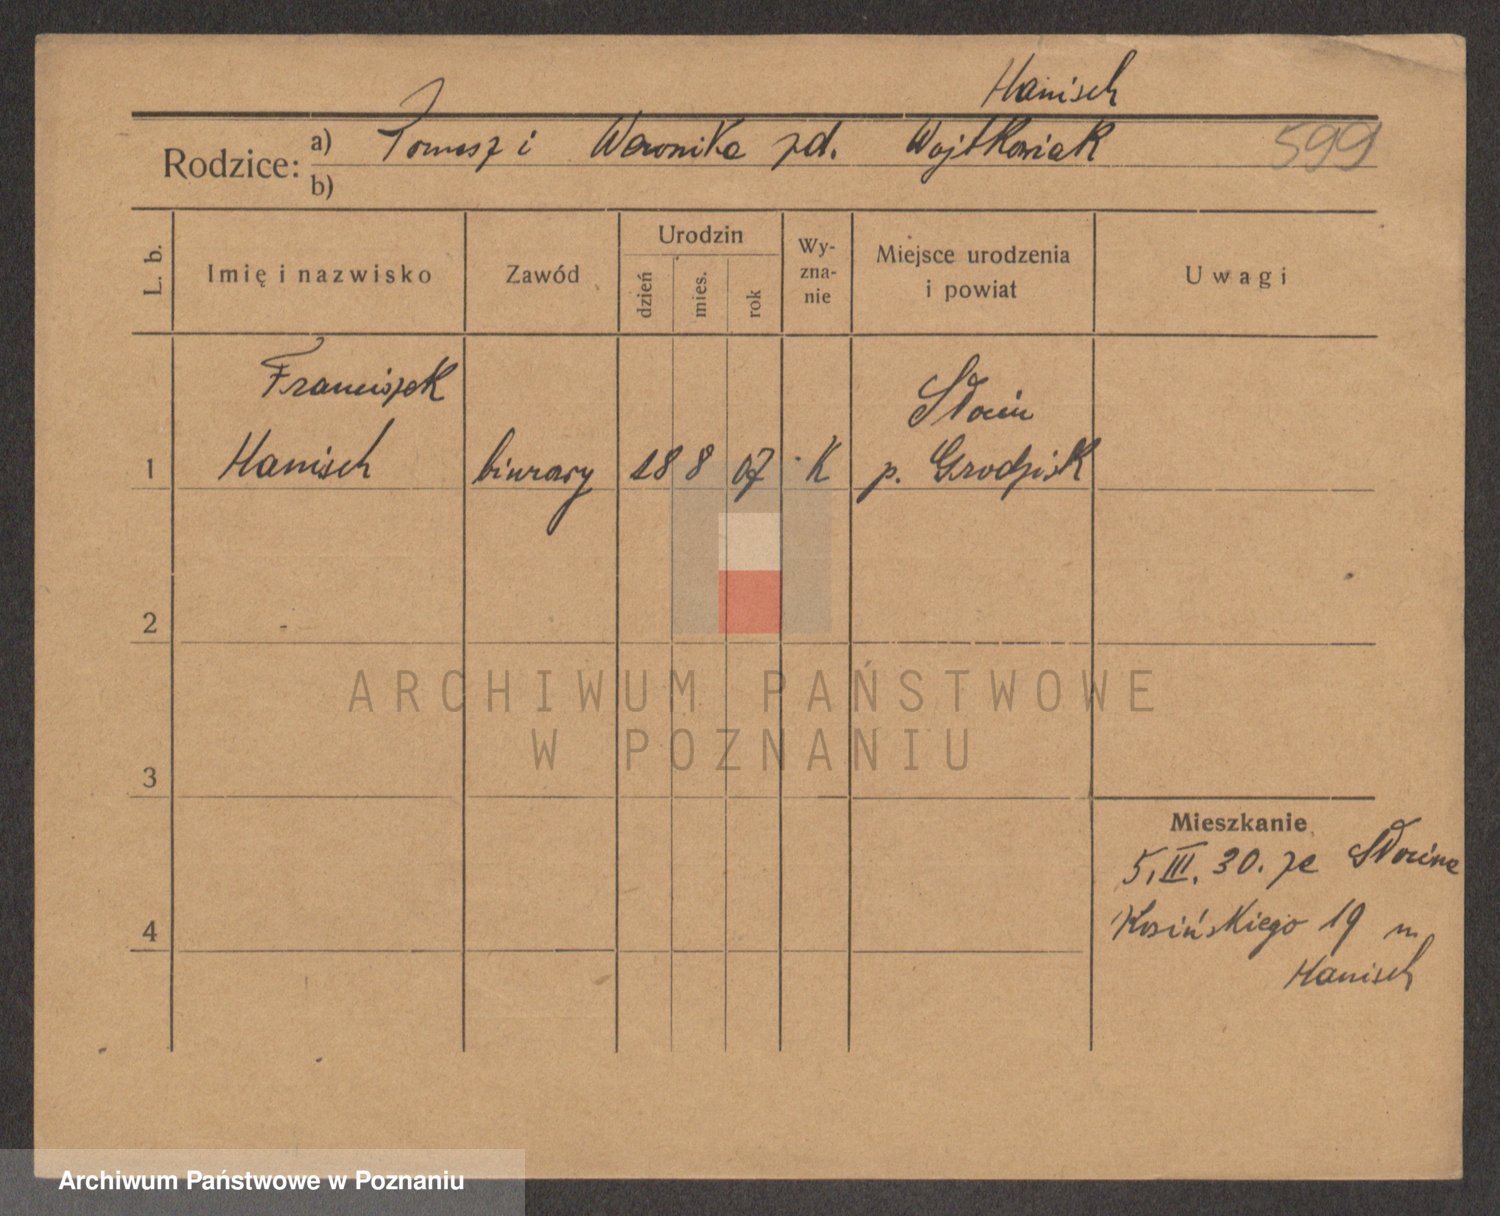 Hanisch
Rodzice: a) Tomasz i Weronika zd. Wojtkowiak 599
b)
L. b. Imię i nazwisko Zawód Urodzin dzień mies. rok Wy-zna-nie Miejsce urodzenia i powiat Uwagi
Franciszek Słocin
1 Hanisch biurowy 18 8 07 K p. Grodzisk
2
ARCHIWUM PAŃSTWOWE
W POZNANIU
3
Mieszkanie
5. III. 30. ze Słocina
4 Kosińskiego 19 m
Hanisch
Archiwum Państwowe w Poznaniu